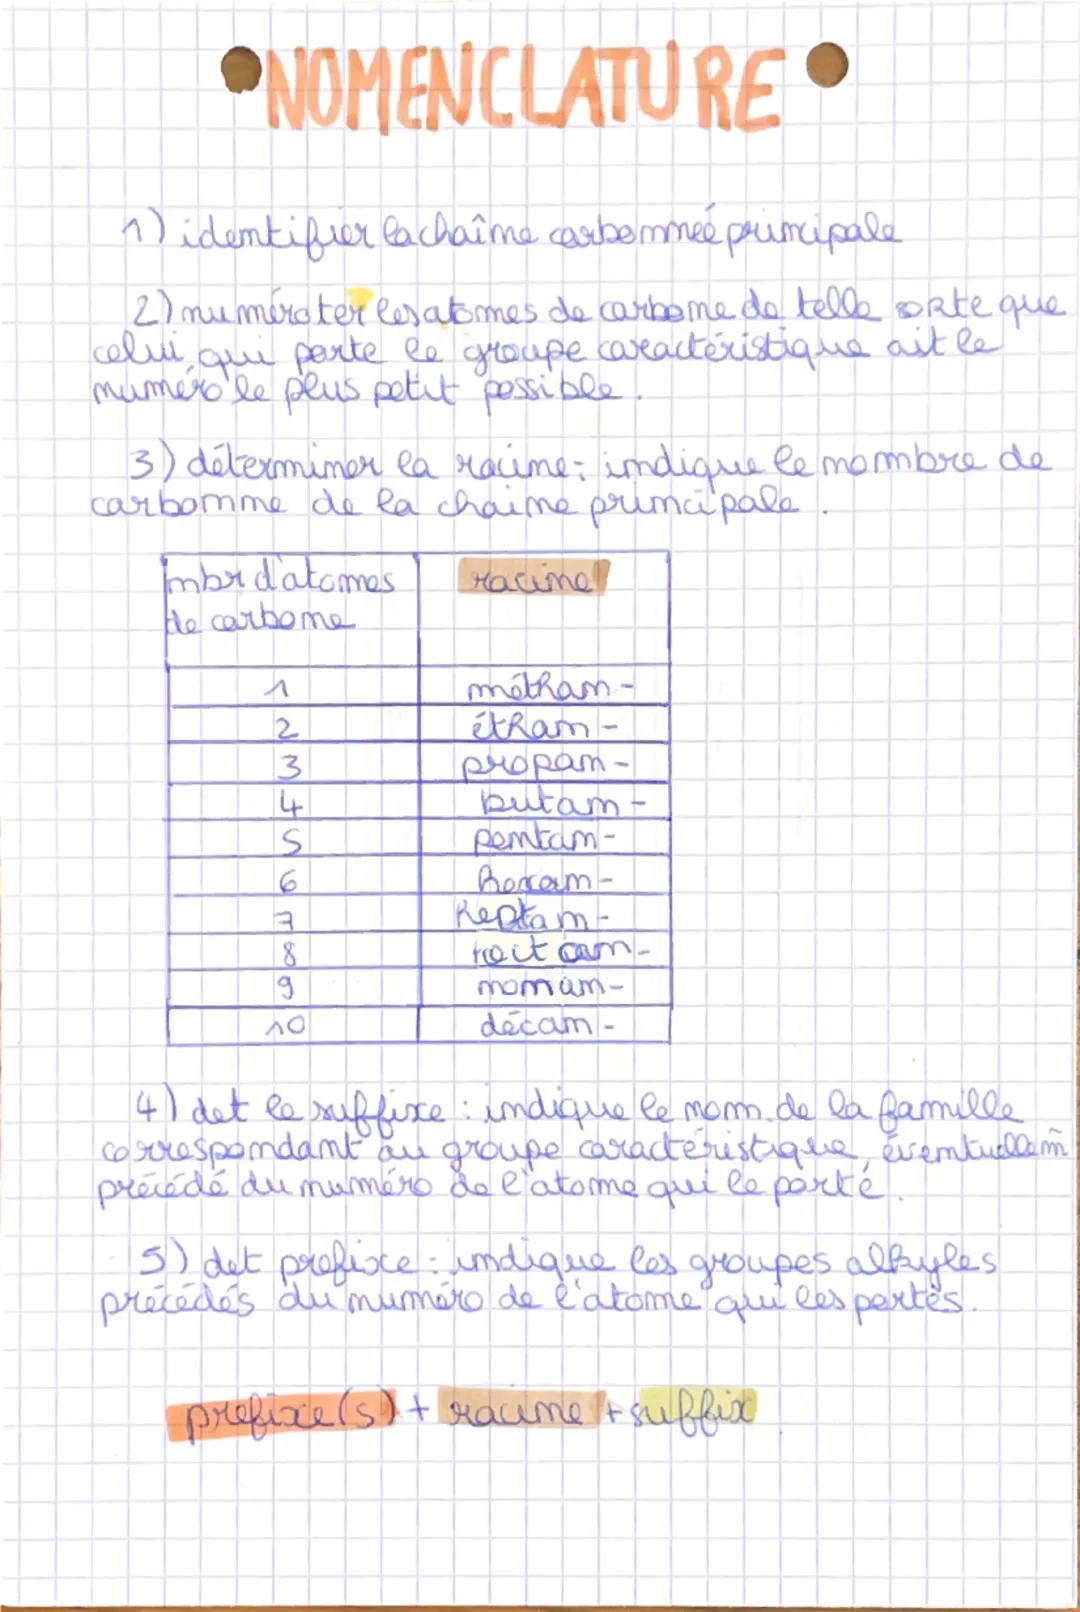 NOMENCLATURE
1) identifier la chaîne carbonneé principale
2) numéroter les atomes de carbone de telle sorte que
celui qui porte le groupe caractéristique ait le
numéro le plus petit possible.
3) déterminer la racine: indique le nombre de
carbonne de la chaine principale.
nbr d'atomes racine
de carbone
1 méthan-
2 éthan-
3 propan-
4 butan-
5 pentan-
6 hexan-
7 heptan-
8 octan-
9 nonan-
10 décan-
4) det le suffixe : indique le nom de la famille
correspondant au groupe caractéristique, éventuellem̃
précédé du numéro de l'atome qui le porte.
5) det prefixe : indique les groupes alkyles
précédés du numéro de l'atome qui les portes.
prefixe(s) + racine + suffix